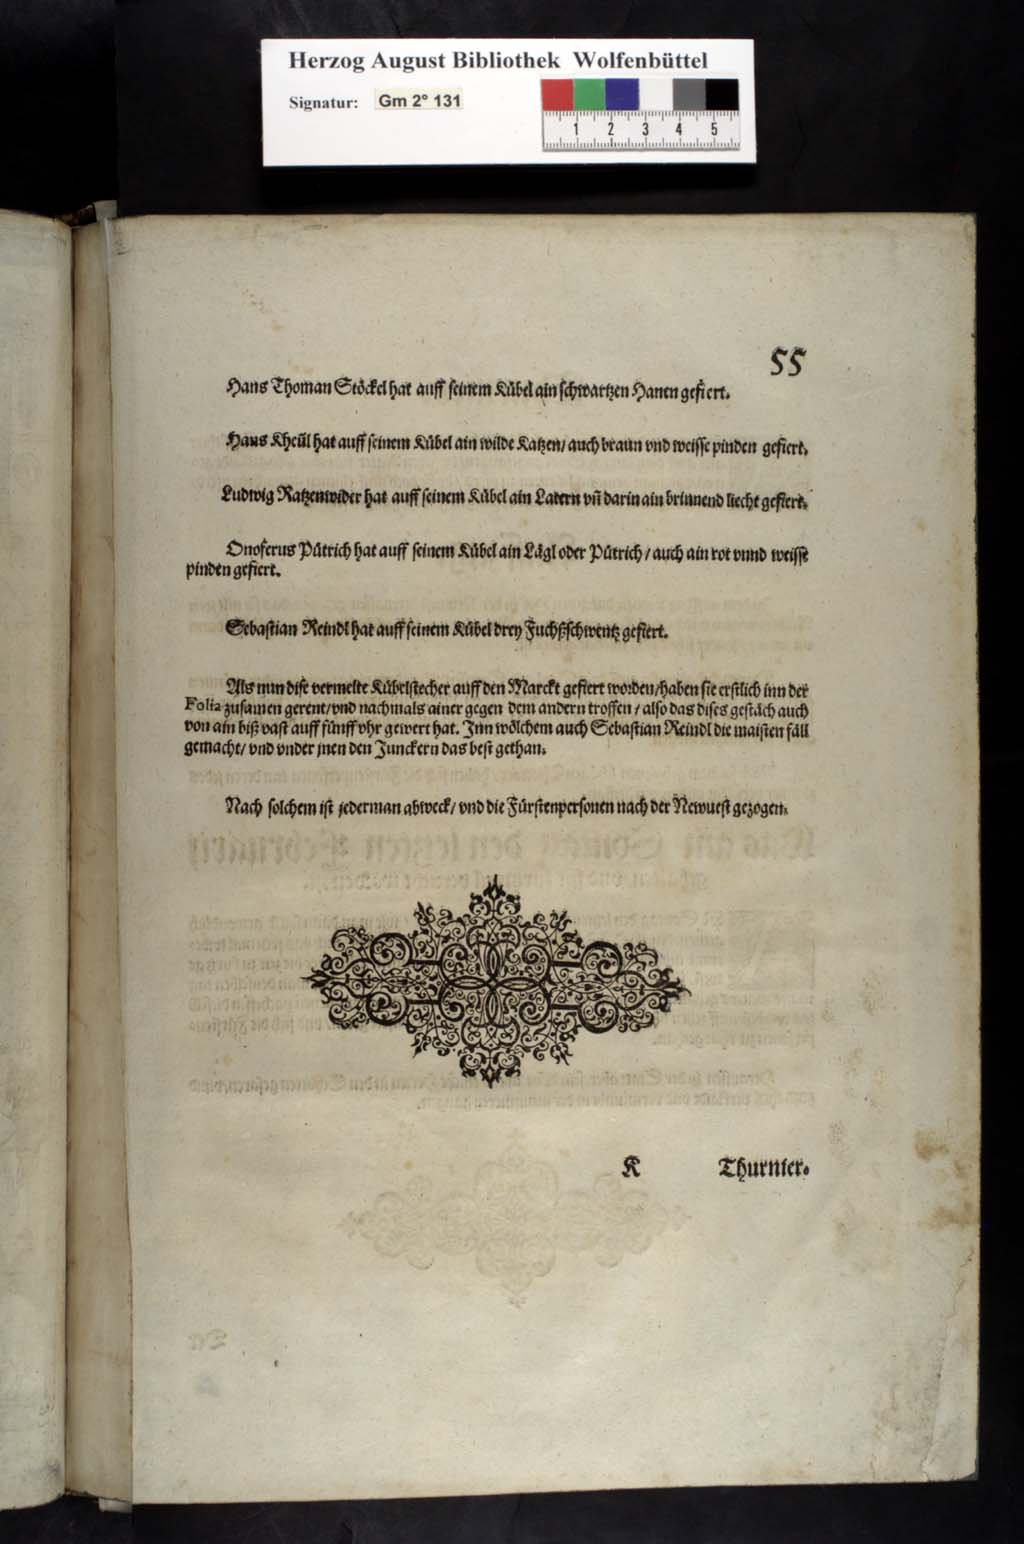 Herzog August Bibliothek Wolfenbüttel
Signatur: Gm 2° 131
1 2 3 4 5
55
Hans Thoman Stöckel hat auff seinem Kübel ain schwartzen Hanen gefiert.
Hans Kheül hat auff seinem Kübel ain wilde Katzen/ auch braun vnd weisse pinden gefiert.
Ludwig Ratzenwider hat auff seinem Kübel ain Latern vñ darin ain brinnend liecht gefiert.
Onoferus Pütrich hat auff seinem Kübel ain Lägl oder Pütrich/ auch ain rot vnnd weisse
pinden gefiert.
Sebastian Reindl hat auff seinem Kübel drey Fuchßschwentz gefiert.
Als nun dise vermelte Kübelstecher auff den Marckt gefiert worden/ haben sie erstlich inn der
Folia zusamen gerent/ vnd nachmals ainer gegen dem andern troffen/ also das dises gestäch auch
von ain biß vast auff fünff vhr gewert hat. Jnn wölchem auch Sebastian Reindl die maisten fäll
gemacht/ vnd vnder jnen den Junckern das best gethan.
Nach solchem ist jederman abweck/ vnd die Fürstenpersonen nach der Newuest gezogen.
K Thurnier.